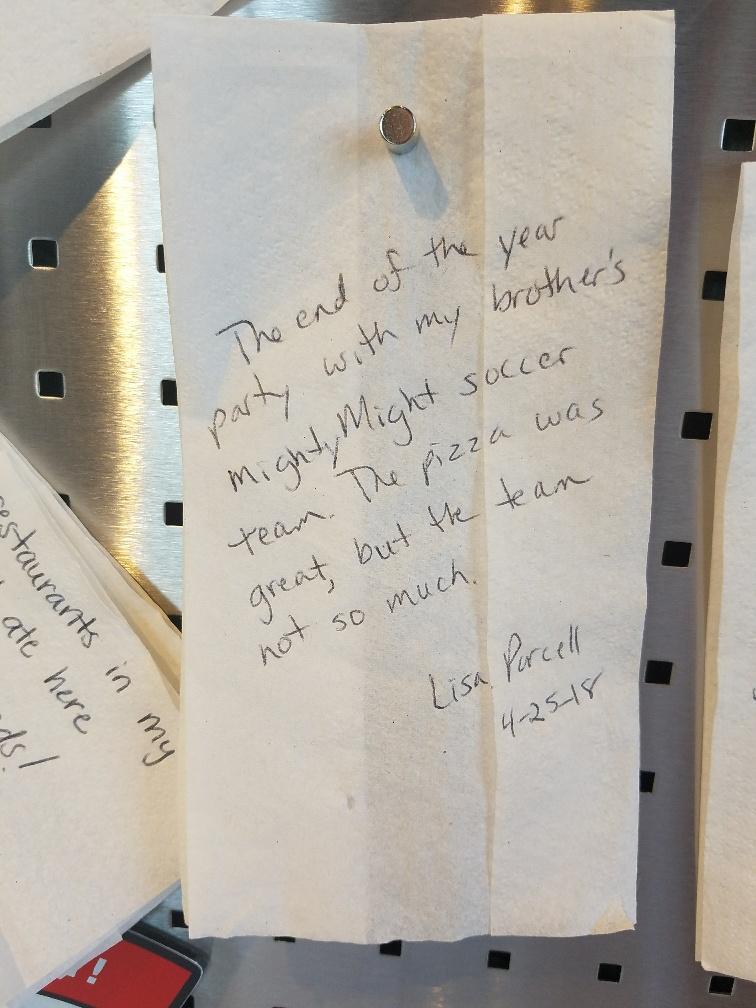 The end of the year
party with my brother's
mighty Might soccer
team. The pizza was
great, but the team
not so much.
Lisa Purcell
4-25-18
restaurants in my
ate here
ds!
!